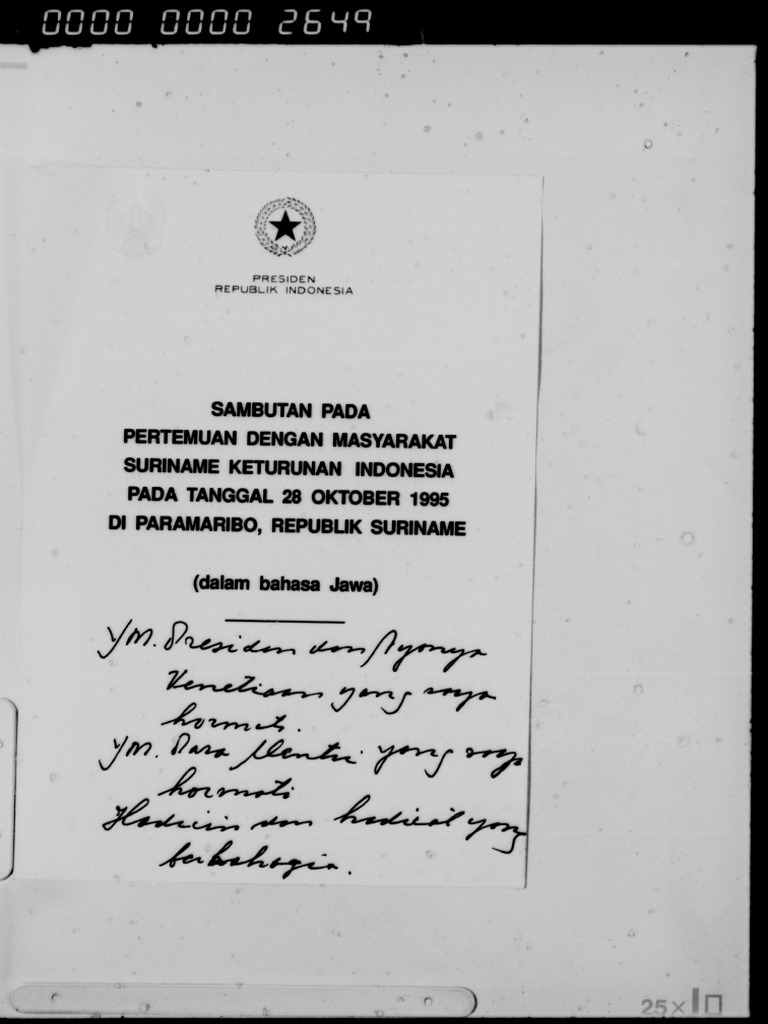 0000 0000 2649
PRESIDEN
REPUBLIK INDONESIA
SAMBUTAN PADA
PERTEMUAN DENGAN MASYARAKAT
SURINAME KETURUNAN INDONESIA
PADA TANGGAL 28 OKTOBER 1995
DI PARAMARIBO, REPUBLIK SURINAME
(dalam bahasa Jawa)
YM. Presiden dan Nyonya
Venetiaan yang saya
hormati.
YM. Para Mentri yang saya
hormati
Hadirin dan hadirat yang
berbahagia.
25×